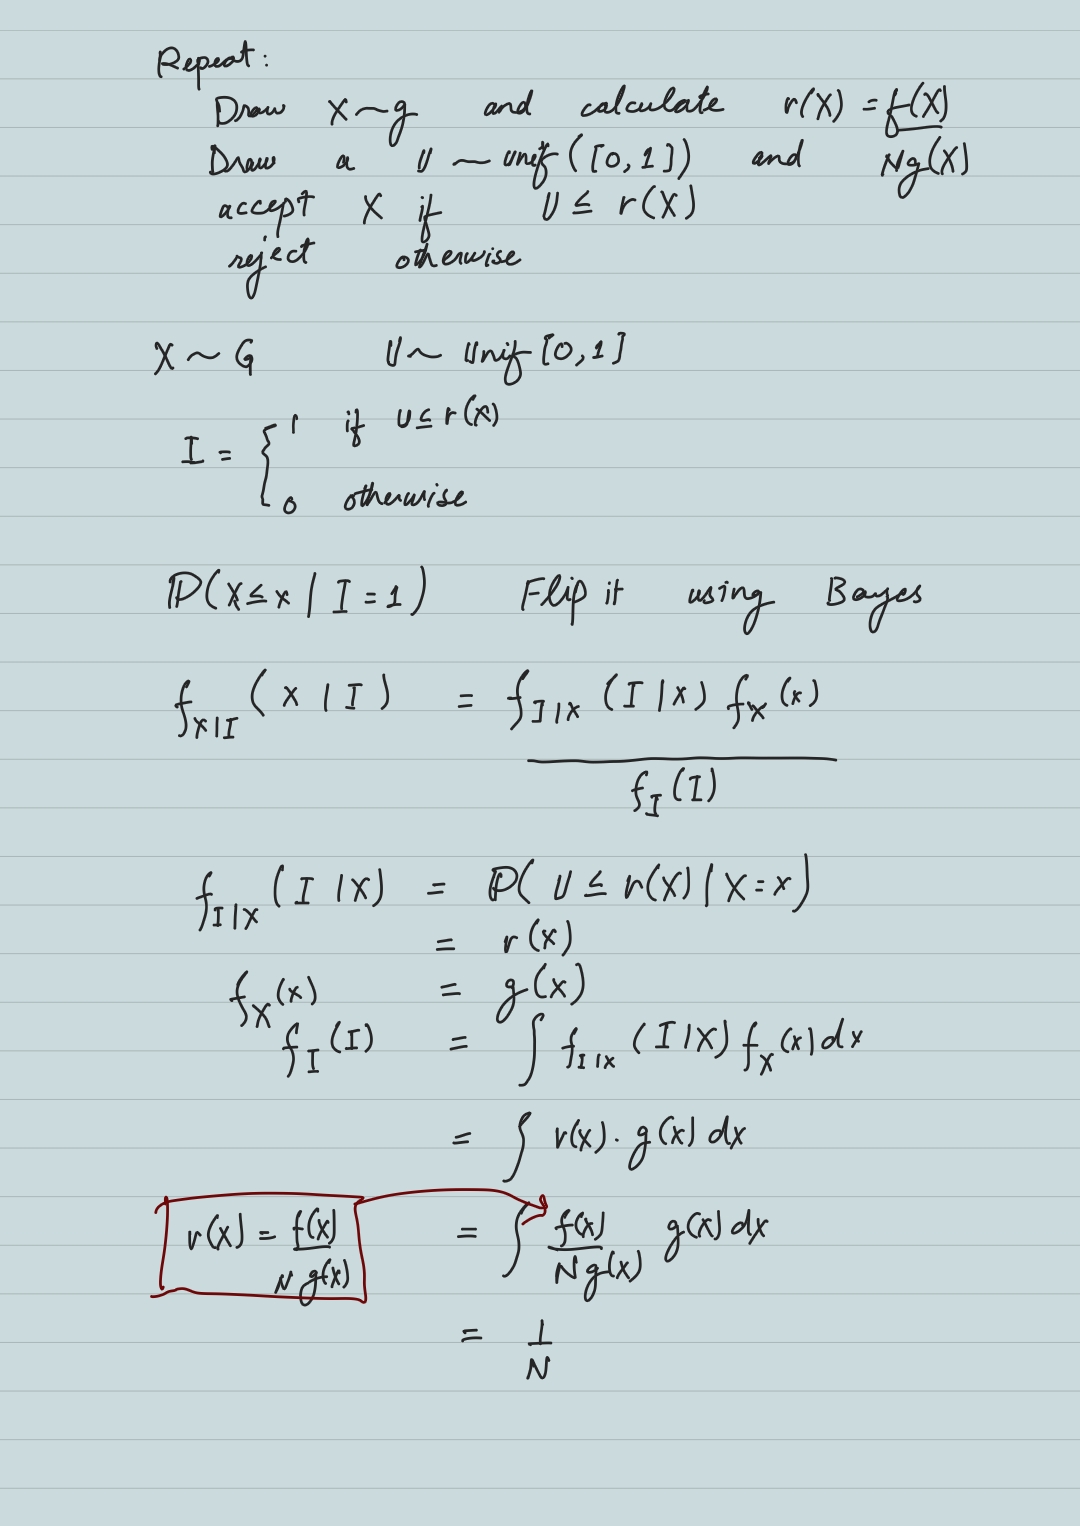 Repeat:
Draw X ~ g and calculate r(X) = f(X) / Ng(X)
Draw a U ~ unif([0,1]) and
accept X if U ≤ r(X)
reject otherwise
X ~ G U ~ Unif[0,1]
I = { 1 if U ≤ r(X)
0 otherwise
P(X ≤ x | I = 1) Flip it using Bayes
f_{X|I}(x | I) = f_{I|X}(I | x) f_X(x) / f_I(I)
f_{I|X}(I | X) = P(U ≤ r(X) | X = x)
= r(x)
f_X(x) = g(x)
f_I(I) = ∫ f_{I|X}(I | X) f_X(x) dx
= ∫ r(x) · g(x) dx
r(X) = f(X) / N g(X)
= ∫ f(x) / N g(x) g(x) dx
= 1 / N